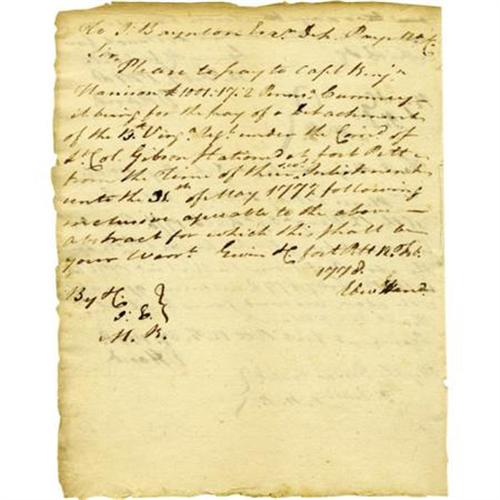 To J: Baynton Esqr. Dep. Paym
Sir,
Please to pay to Capt Benjn
Harrison 1001:17:2 Pennsa Currency
it being for the pay of a Detachment
of the 13th Virga Regt. under the Comd of
Lt Col. Gibson Stationed at fort Pitt
from the Time of their Inlistments
unto the 31th of May 1777 following
inclusive agreeable to the above
abstract for which this shall be
your Warrt. Given fort Pitt Feb.
1778.
Edwd Hand
By
J. E.
M. R.